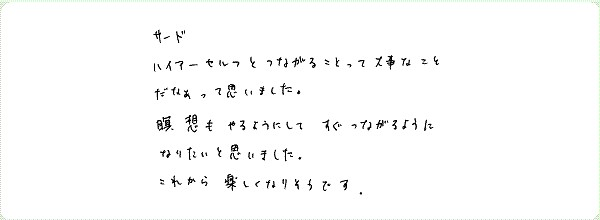 サード
ハイアーセルフとつながることって大事なこと
だなぁって思いました。
瞑想もやるようにしてすぐつながるように
なりたいと思いました。
これから楽しくなりそうです.